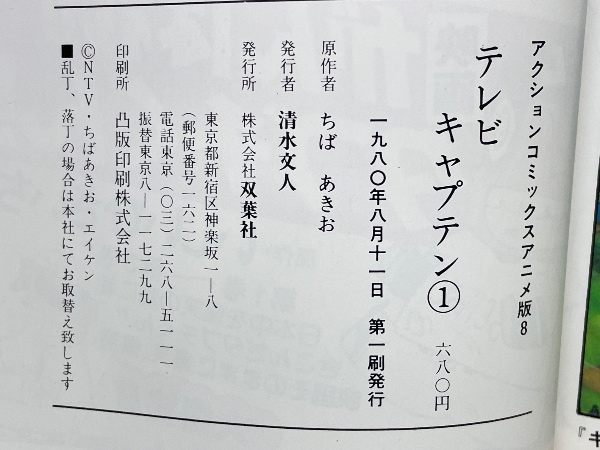 アクションコミックスアニメ版8
テレビ
キャプテン①
六八〇円
一九八〇年八月十一日 第一刷発行
原作者 ちば あきお
発行者 清水文人
発行所 株式会社双葉社
東京都新宿区神楽坂一―八
(郵便番号一六二)
電話東京(〇三)二六八―五一一一
振替東京八―一一七二九九
印刷所 凸版印刷株式会社
©NTV・ちばあきお・エイケン
■乱丁、落丁の場合は本社にてお取替え致します
『キ